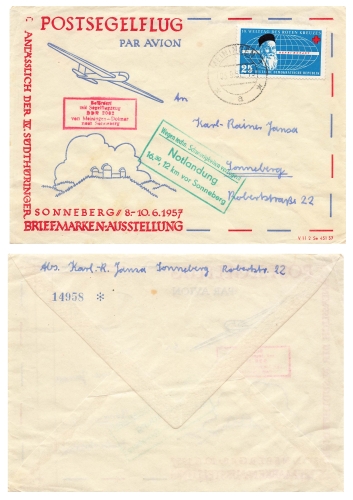 POSTSEGELFLUG
PAR AVION
C ANLÄSSLICH DER IV. SÜDTHÜRINGER
IM DIENSTE DES ROTEN KREUZES
25
DEUTSCHE DEMOKRATISCHE REPUBLIK
Befördert
mit Segelflugzeug
DDR
von Meiningen-Dolmar
nach Sonneberg
An
Karl-Rainer Jansa
Wegen techn. Schwierigkeiten
Notlandung
16.00 12 km vor Sonneberg
Sonneberg
Robertstraße 22
SONNEBERG // 8-10.6.1957
BRIEFMARKEN-AUSSTELLUNG
V 11 2 So 451 57
Abs. Karl-R. Jansa Sonneberg Robertstr. 22
14958 *